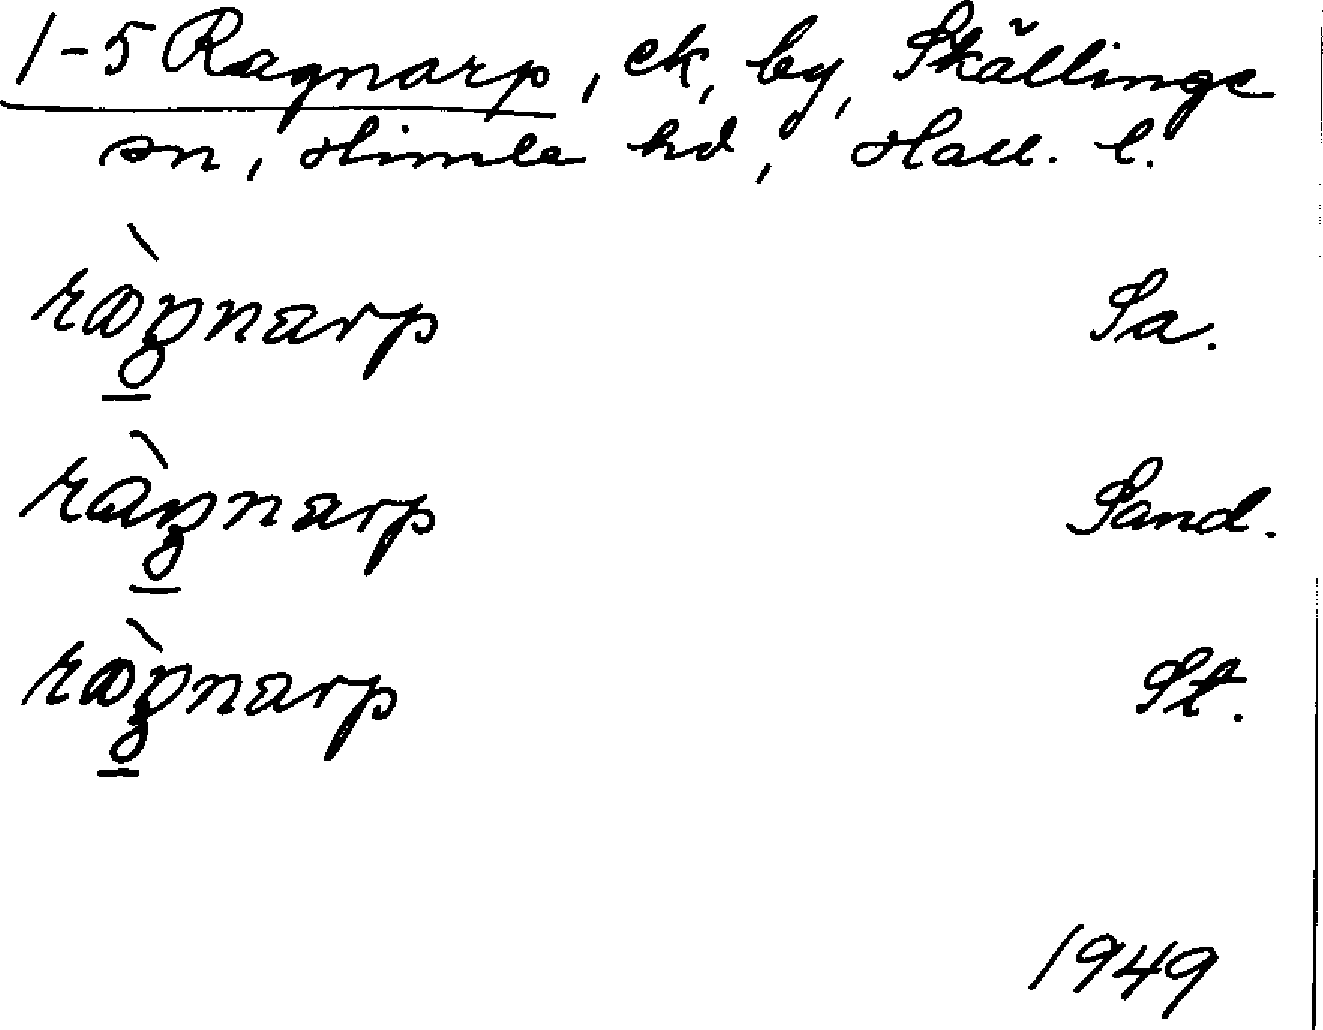 1-5 Ragnarp, ek, by, Skällinge
sn, Himle hd, Hall. l.
ràŋnarp Sa.
ràŋnarp Sand.
ràŋnarp St.
1949